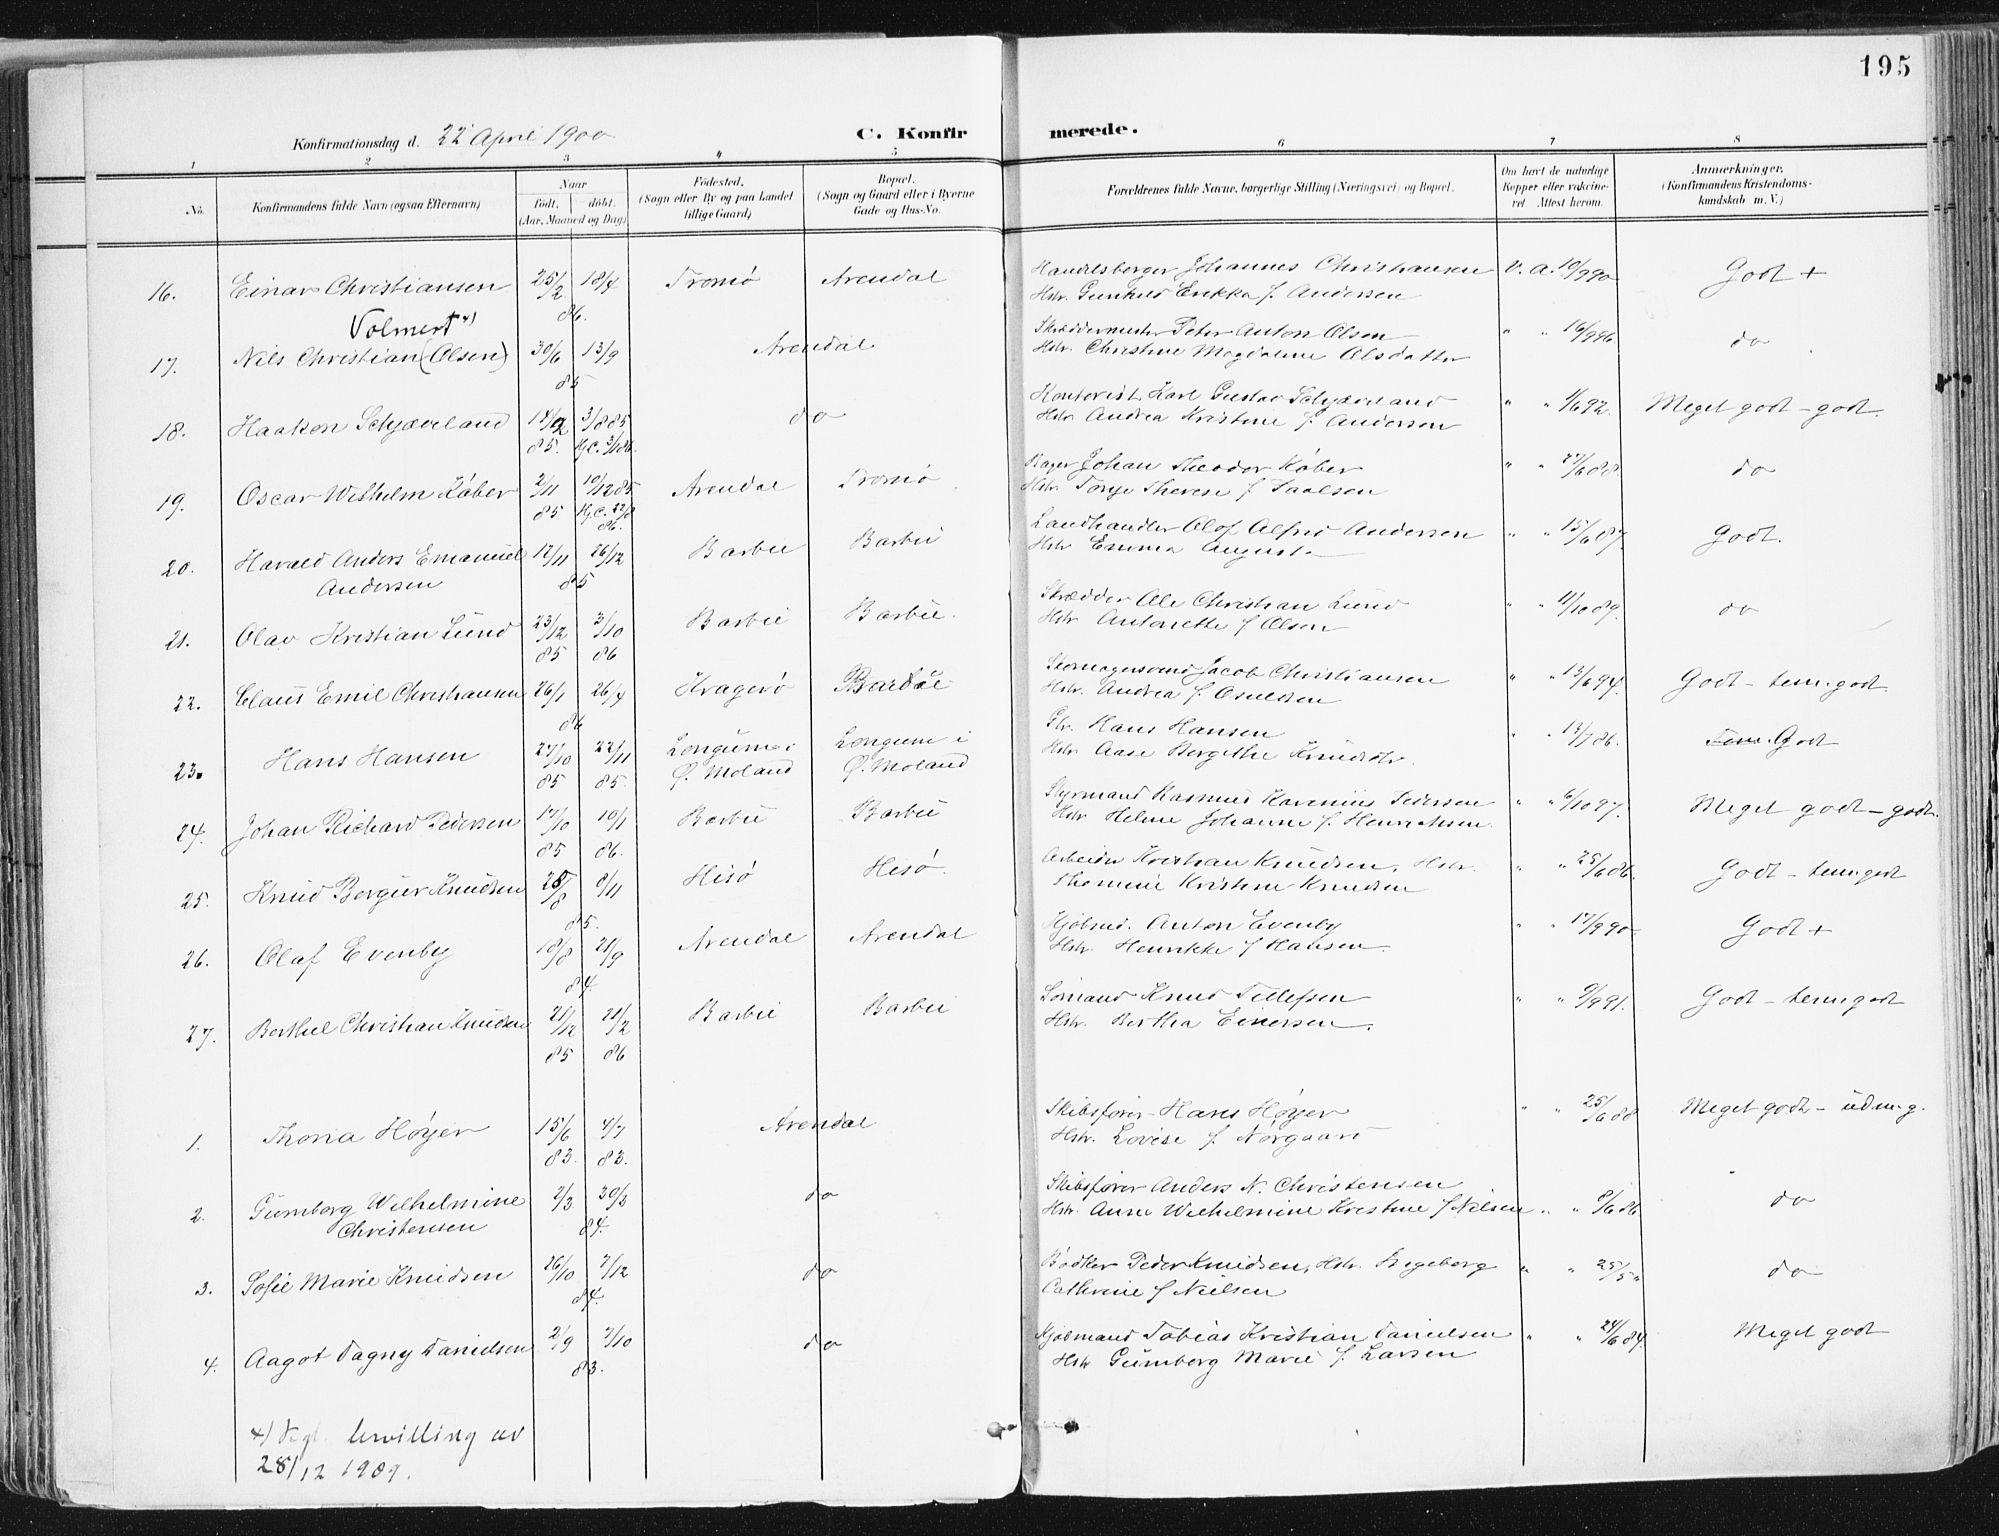 195
Konfirmationsdag d. 22 April 1900
C. Konfirmerede.
1 2 3 4 5 6 7 8
No.
Konfirmandens fulde Navn (ogsaa Efternavn)
Naar
født. døbt.
(Aar, Maaned og Dag)
Fødested.
(Sogn eller By og paa Landet
tillige Gaard)
Bopæl.
(Sogn og Gaard eller i Byerne
Gade og Hus-No.
Forældrenes fulde Navne, borgerlige Stilling (Næringsvei) og Bopæl.
Om havt de naturlige
Kopper eller vakcine-
ret Attest herom.
Anmærkninger.
(Konfirmandens Kristendoms-
kundskab m. V.)
16. Einar Christiansen 25/2 18/4 Tromø Arendal Handelsborger Johannes Christiansen V. A. 10/9 90 Godt +
86. Hstr. Gunhild Erikka f. Andersen
Volmert x)
17. Nils Christian (Olsen) 30/6 13/9 Arendal Skræddermester Peter Anton Olsen " " 16/9 96 do
85 Hstr. Christine Magdalene Olsdatter
18. Haakon Schjæveland 14/2 3/8 85 do Kontorist Karl Gustav Schjæveland " " 1/6 92. Meget godt - godt.
85. Hj.C. 3/1 86. Hstr. Andrea Kristine f. Andersen
19. Oscar Wilhelm Køber 2/11 10/12 85 Arendal Tromø Bager Johan Theodor Køber " " 27/6 88 do
85 Hj.C. 22/8 86. Hstr. Therese f.
20. Harald Anders Emanuel 17/11 26/12 Barbu Barbu Landhandler Olof Alfred Andersen " " 15/6 87. Godt.
Andersen 85 Hstr Emma Augusta
21. Olav Kristian Lund 23/12 3/10 Barbu Barbu. Skrædder Ole Christian Lund " " 11/10 89. do
85 86 Hstr Antonette f Olsen
22. Claus Emil Christiansen 26/1 26/4 Kragerø Barbu Skomagersvend Jacob Christiansen " " 13/6 94. Godt - tem. godt
86 Hstr. Andrea f. Osuldsen
23. Hans Hansen 27/10 22/11 Longum i Longum i Gbr. Hans Hansen " " 14/7 86. Tem. Godt
85 85. Ø. Moland Ø. Moland Hstr Aase Bergithe Knudsdtr.
24. Johan Richard Pedersen 17/10 10/1 Barbu Barbu Styrmand Rasmus Pedersen " " 6/10 97. Meget godt - godt.
85 86. Hstr Helene Johanne f. Henrichsen.
25. Knud Berger Knudsen 28/8 8/11 Hisø Hisø. Arbeider Kristian Knudsen, Hstr. " " 25/6 86. Godt - tem. godt
85. Thomine Kristine Knudsen
26. Olaf Evenby 18/8 21/9 Arendal Arendal Kjøbmd. Anton Evenby " " 17/9 90 Godt +
84. Hstr. Henrikke f Hansen.
27. Berthel Christian Knudsen 21/12 21/2 Barbu Barbu Sømand Knud Tellefsen " " 9/9 91. Godt - tem. godt
85 86 Hstr. Bertha Einersen.
1. Thora Høyer 15/6 4/7 Arendal Skibsfører Hans Høyer " " 25/6 88 Meget godt - udm. g.
83. 83. Hstr. Lovise f. Nørgaard
2. Gunborg Wilhelmine 2/3 30/3 do Skibsfører Anders N. Christensen
Christensen 84. Hstr. Anne Wilhelmine Kristine f Nilsen " " 8/6 86 do
3. Sofie Marie Knudsen 26/10 7/12 do Bødker Peder Knudsen, Hstr. Ingeborg " " 25/5 " do
84. Cathrine f Nielsen
4. Aagot Dagny Danielsen 2/9 7/10 do Kjøbmand Tobias Kristian Danielsen " " 24/6 84. Meget godt
83. Hstr Gunborg Marie f. Larsen
x) Ifgl. bevilling av
28/12 1909.